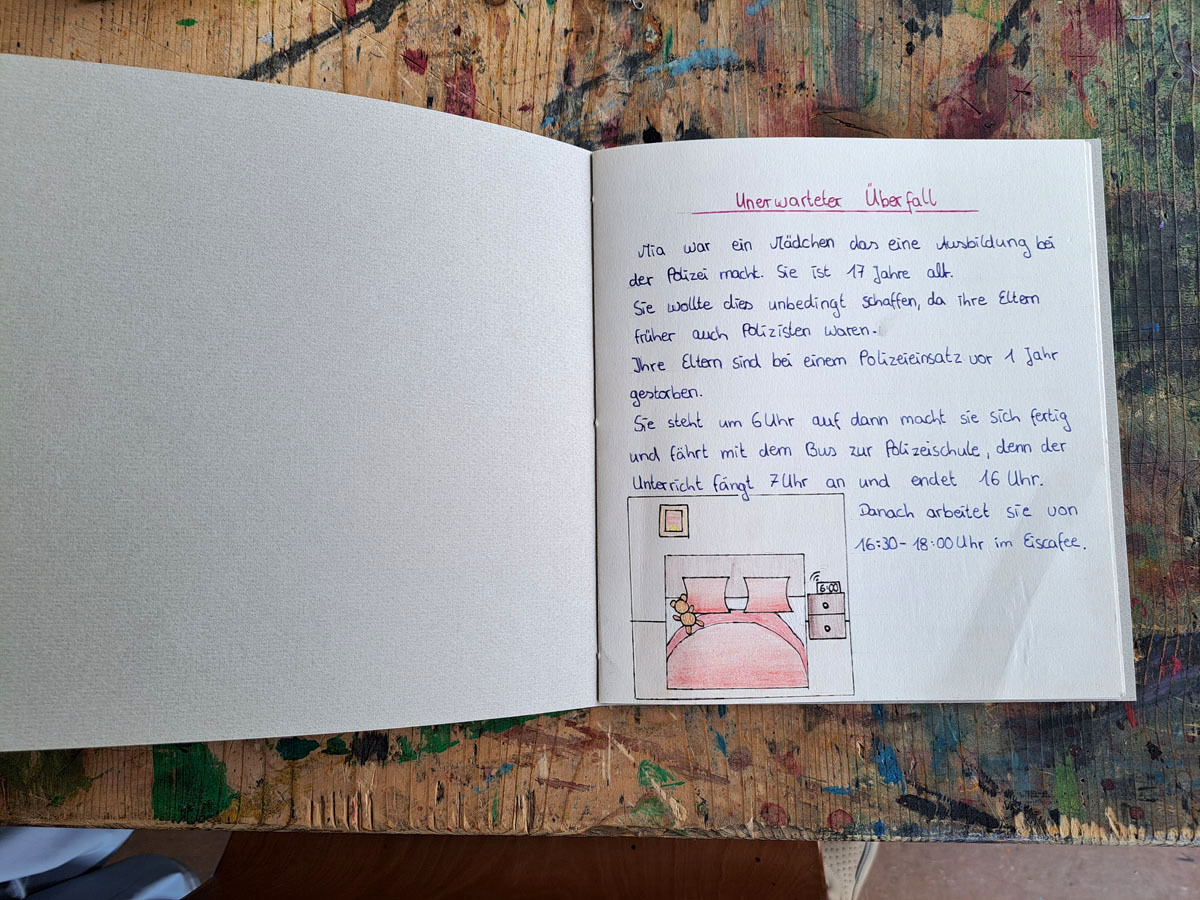 Unerwarteter Überfall
Mia war ein Mädchen das eine Ausbildung bei
der Polizei macht. Sie ist 17 Jahre alt.
Sie wollte dies unbedingt schaffen, da ihre Eltern
früher auch Polizisten waren.
Ihre Eltern sind bei einem Polizeieinsatz vor 1 Jahr
gestorben.
Sie steht um 6 Uhr auf dann macht sie sich fertig
und fährt mit dem Bus zur Polizeischule, denn der
Unterricht fängt 7 Uhr an und endet 16 Uhr.
Danach arbeitet sie von
16:30-18:00 Uhr im Eiscafee.
6:00